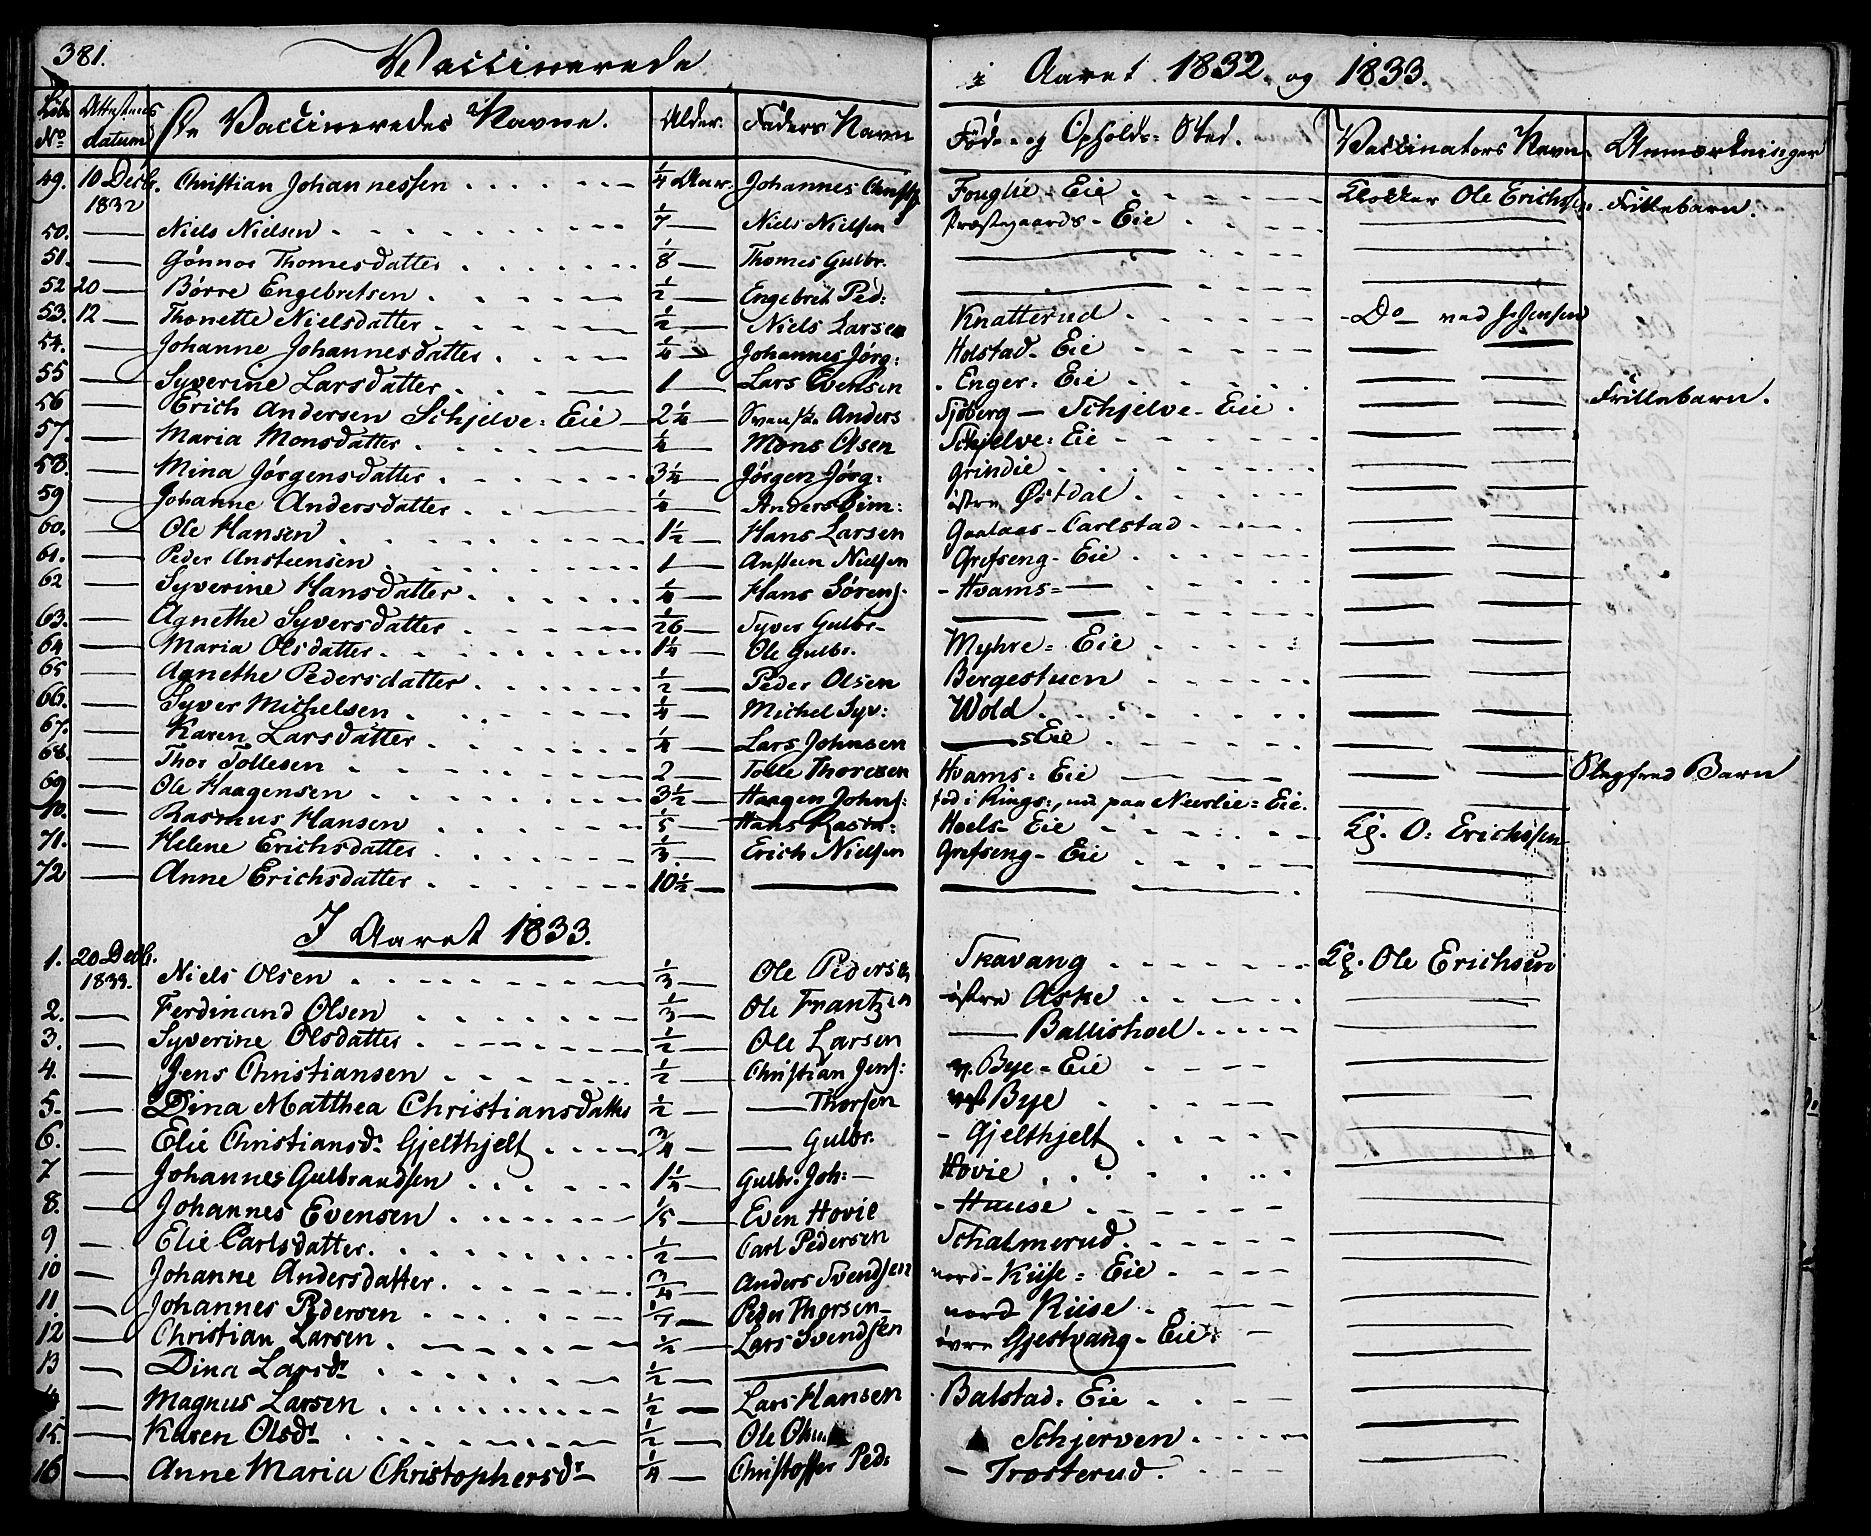 381. Vaccinerede i Aaret 1832. og 1833.
Löbe No. Attestens datum De Vaccineredes Navne. Alder. Faders Navn Föde- og Opholds-Sted. Vaccinators Navn. Anmærkninger
49. 10 Decb. 1832 Christian Johannessen ¼ Aar. Johannes Christ Fouglie=Eie Klokker Ole Erichsen Frillebarn.
50. — Niels Nielsen 1/7 — Niels Nielsen Præstegaards-Eie —
51. — Gönnor Thomesdatter 1/8 — Thomes Gulbr. — —
52 20 — Börre Engebretsen ½ — Engebret Ped: — —
53. 12 — Thonette Nielsdatter ½ — Niels Larsen Knatterud - Do - ved J. Jensen
54. — Johanne Johannesdatter ¼ — Johannes Jörg: Holstad-Eie — —
55 — Syverine Larsdatter 1 — Lars Evensen Enger=Eie — — Frillebarn.
56 — Erich Andersen Schjelve=Eie — 2¼ — Svenske Anders Sjöberg — Schjelve-Eie — —
57. — Maria Monsdatter ¼ — Mons Olsen Schjelve=Eie — —
58. — Mina Jörgensdatter 3¼ — Jörgen Jörg: Grindie — —
59 — Johanne Andersdatter ¼ — Anders Sim: östre Östdal — —
60. — Ole Hansen 1½ — Hans Larsen Gaalaas-Carlstad — —
61. — Peder Ansteensen 1 — Ansteen Nielsen Grefseng-Eie — —
62 — Syverine Hansdatter ¼ — Hans Sörens. - Hvams= — — —
63. — Agnethe Syversdatter 1/26 — Syver Gulbr- — — — —
64 — Maria Olsdatter 1¼ — Ole Gulbr. Myhre=Eie — —
65 — Agnethe Pedersdatter ½ — Peder Olsen Bergestuen — —
66. — Syver Michelsen ¼ — Michel Syv: Wold — —
67. — Karen Larsdatter ¼ — Lars Johnsen — s Eie — —
68. — Thor Tollesen 2 — Tolle Thoresen Hvams=Eie — — Slegfred Barn
69 — Ole Haagensen 3½ — Haagen Johns: föd i Rings:, nu paa Neerlie=Eie. — —
70. — Rasmus Hansen 1/5 — Hans Rasm: Hoels-Eie Kl. O: Erichssen
71. — Helene Erichsdatter 1/3 — Erich Nielsen Grefseng-Eie —
72 — Anne Erichsdatter 10½ — — — —
I Aaret 1833.
1. 20 Decb. 1833. Niels Olsen 1/3 — Ole Pedersen Skavang Kl. Ole Erichsen
2. — Ferdinand Olsen 1/3 — Ole Frantzen östre Aske —
3. — Syverine Olsdatter ½ — Ole Larsen — Ballishoel —
4. — Jens Christiansen ½ — Christian Jens: n. Bye-Eie —
5. — Dina Matthea Christiansdatter ½ — — Thorsen Bye —
6. — Elie Christiansdr Gjelthjelt ¾ — — Gulbr. - Gjelthjelt —
7 — Johannes Gulbrandsen 1¼ — Gulbr. Joh: — Hovie —
8. — Johannes Evensen 1/5 — Even Hovie - Huuse —
9 — Elie Carlsdatter. ½ — Carl Pedersen Schalmerud —
10 — Johanne Andersdatter. ¾ — Anders Svendsen nord-Kiise=Eie —
11. — Johannes Pedersen 1/7 — Peder Thorsen- nord Kiise —
12 — Christian Larsen ½ — Lars Svendsen övre Gjestvang-Eie —
13 — Dina Larsdr ½ — — — —
— Magnus Larsen ½ — Lars Hansen Balstad=Eie —
15. — Karen Olsdr ½ — Ole Schjerven —
16 — Anne Maria Christophersdr ¼ — Christoffer Ped: — Trosterud. —